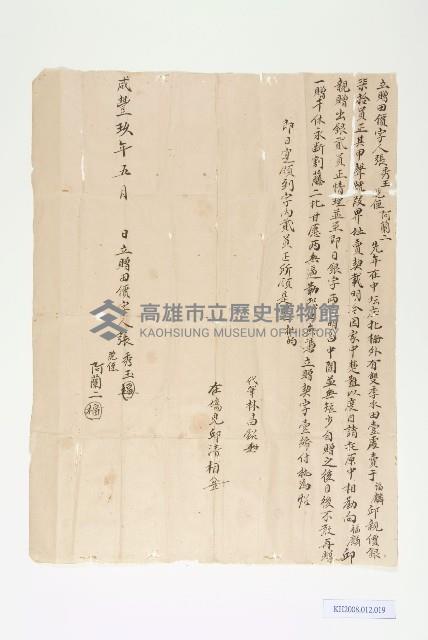 立贈田價字人張秀玉兄侄阿蘭二先年在中坛庄北柵外有雙季水田壹處賣于福麟邱親價銀
柒拾員正其甲聲號段界址賣契載明今因家中楚難以度日請托原中相勸向福麟邱
親贈出銀貳員正情理並至即日銀字兩明當中閂並無短少自贈之後日後不敢再贈
一贈千休永斷割藤二比甘愿兩無逼勒恐口無憑立贈契字壹紙付執為炤
即日實領到字內貳員正所領是的
代筆林昌
在場兄邱清柏
咸豐玖年五月 日立贈田價字人張秀玉
兄侄阿蘭二
高雄市立歷史博物館
KAOHSIUNG MUSEUM OF HISTORY
KH2008.012.019